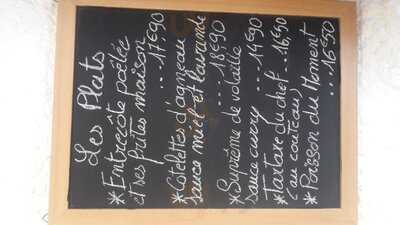 Les Plats
* Entrecôte poêlée
et ses frites maison
... 17€90
* Cotelettes d'agneau
sauce miel et lavande
... 18€90
* Suprême de volaille
sauce curry ... 14€90
* Tartare du chef ... 16,€90
(au couteau)
* Poisson du Moment
... 16€50